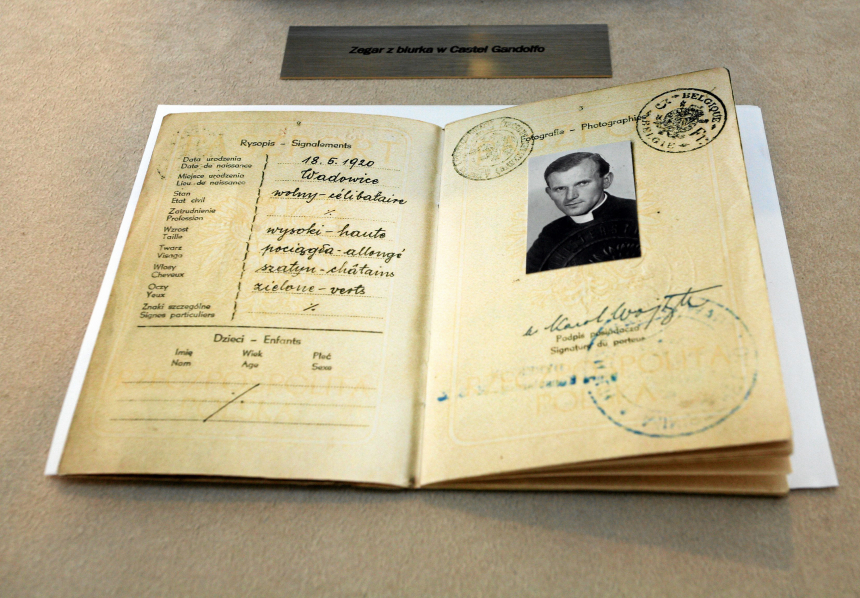 Zegar z biurka w Castel Gandolfo
Rysopis – Signalements
Data urodzenia
Date de naissance
18.5.1920
Miejsce urodzenia
Lieu de naissance
Wadowice
Stan
Etat civil
wolny – célibataire
Zatrudnienie
Profession
Wzrost
Taille
wysoki – haute
Twarz
Visage
pociągła – allongé
Włosy
Cheveux
szatyn – châtains
Oczy
Yeux
zielone – verts
Znaki szczególne
Signes particuliers
Dzieci – Enfants
Imię Wiek Płeć
Nom Age Sexe
3
Fotografie – Photographies
BELGIQUE
BELGIE
Karol Wojtyła
Podpis posiadacza
Signature du porteur
RZECZPOSPOLITA
POLSKA